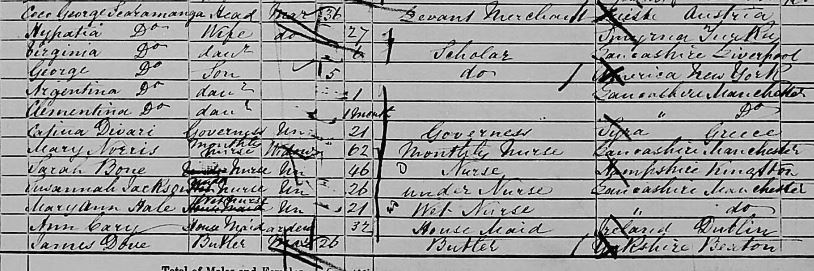 George Scaramanga Head Mar 36 Levant Merchant Trieste Austria
Hypatia Do Wife do 27 Smyrna Turkey
Virginia Do daur 6 Scholar Lancashire Liverpool
George Do Son 5 do America New York
Argentina Do daur 1 Lancashire Manchester
Clementina Do daur 1 Month " Do
Divari Governess Un 21 Governess Syra Greece
Mary Norris Monthly Nurse Widow 62 Monthly Nurse Lancashire Manchester
Sarah Bone Nurse Un 46 Nurse Hampshire Kingston
Susannah Jackson Nurse Un 26 under Nurse Lancashire Manchester
Mary Ann Hale Wet Nurse Un 21 Wet Nurse " do
Ann Cary House Maid 32 House Maid Ireland Dublin
James Dove Butler Mar 26 Butler
Total of Males and Females